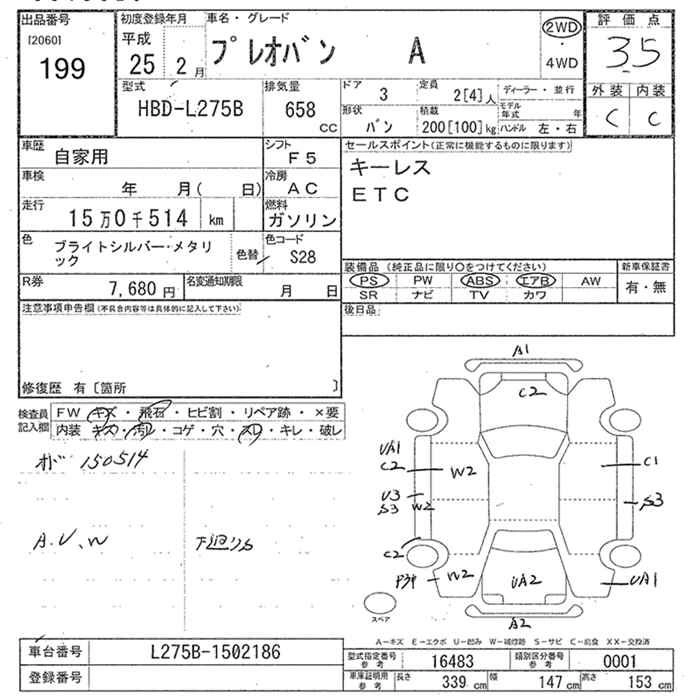 出品番号
[2060]
199
初度登録年月
平成
25 2 月
車名・グレード
プレオバン A
2WD
・
4WD
評価点
3.5
外装 内装
C C
型式
HBD-L275B
排気量
658
cc
ドア
3
定員
2[4]人
ディーラー・並行
形状
バン
積載
200[100]kg
モデル年式 年
ハンドル 左・右
車歴
自家用
シフト
F5
車検
年 月( 日)
冷房
AC
走行
15万0千514 km
燃料
ガソリン
色
ブライトシルバー・メタリ
ック
色替
色コード
S28
R券
7,680円
名変通知期限
月 日
セールスポイント(正常に機能するものに限ります)
キーレス
ETC
装備品 (純正品に限り○をつけてください)
PS PW ABS エアB AW
SR ナビ TV カワ
新車保証書
有・無
後日品
注意事項申告欄(不具合内容等は具体的に記入して下さい)
修復歴 有〔箇所 〕
検査員
記入欄
FW キズ・飛石・ヒビ割・リペア跡・×要
内装 キズ・汚レ・コゲ・穴・スレ・キレ・破レ
オド 150514
A.U.W
下廻りS
A1
C2
UA1
C2
W2
C1
U3
S3
W2
S3
C2
W2
UA2
UA1
A2
スペア
A-キズ E-エクボ U-凹み W-補修跡 S-サビ C-腐食 XX-交換済
車台番号
L275B-1502186
登録番号
型式指定番号
参考
16483
類別区分番号
参考
0001
車庫証明用
参考
長さ
339 cm
幅
147 cm
高さ
153 cm